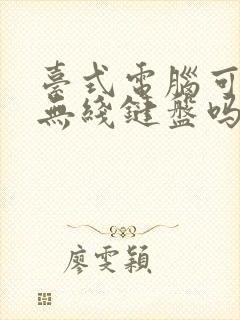 臺式電腦可
無綫鍵盤吗
廖雯穎